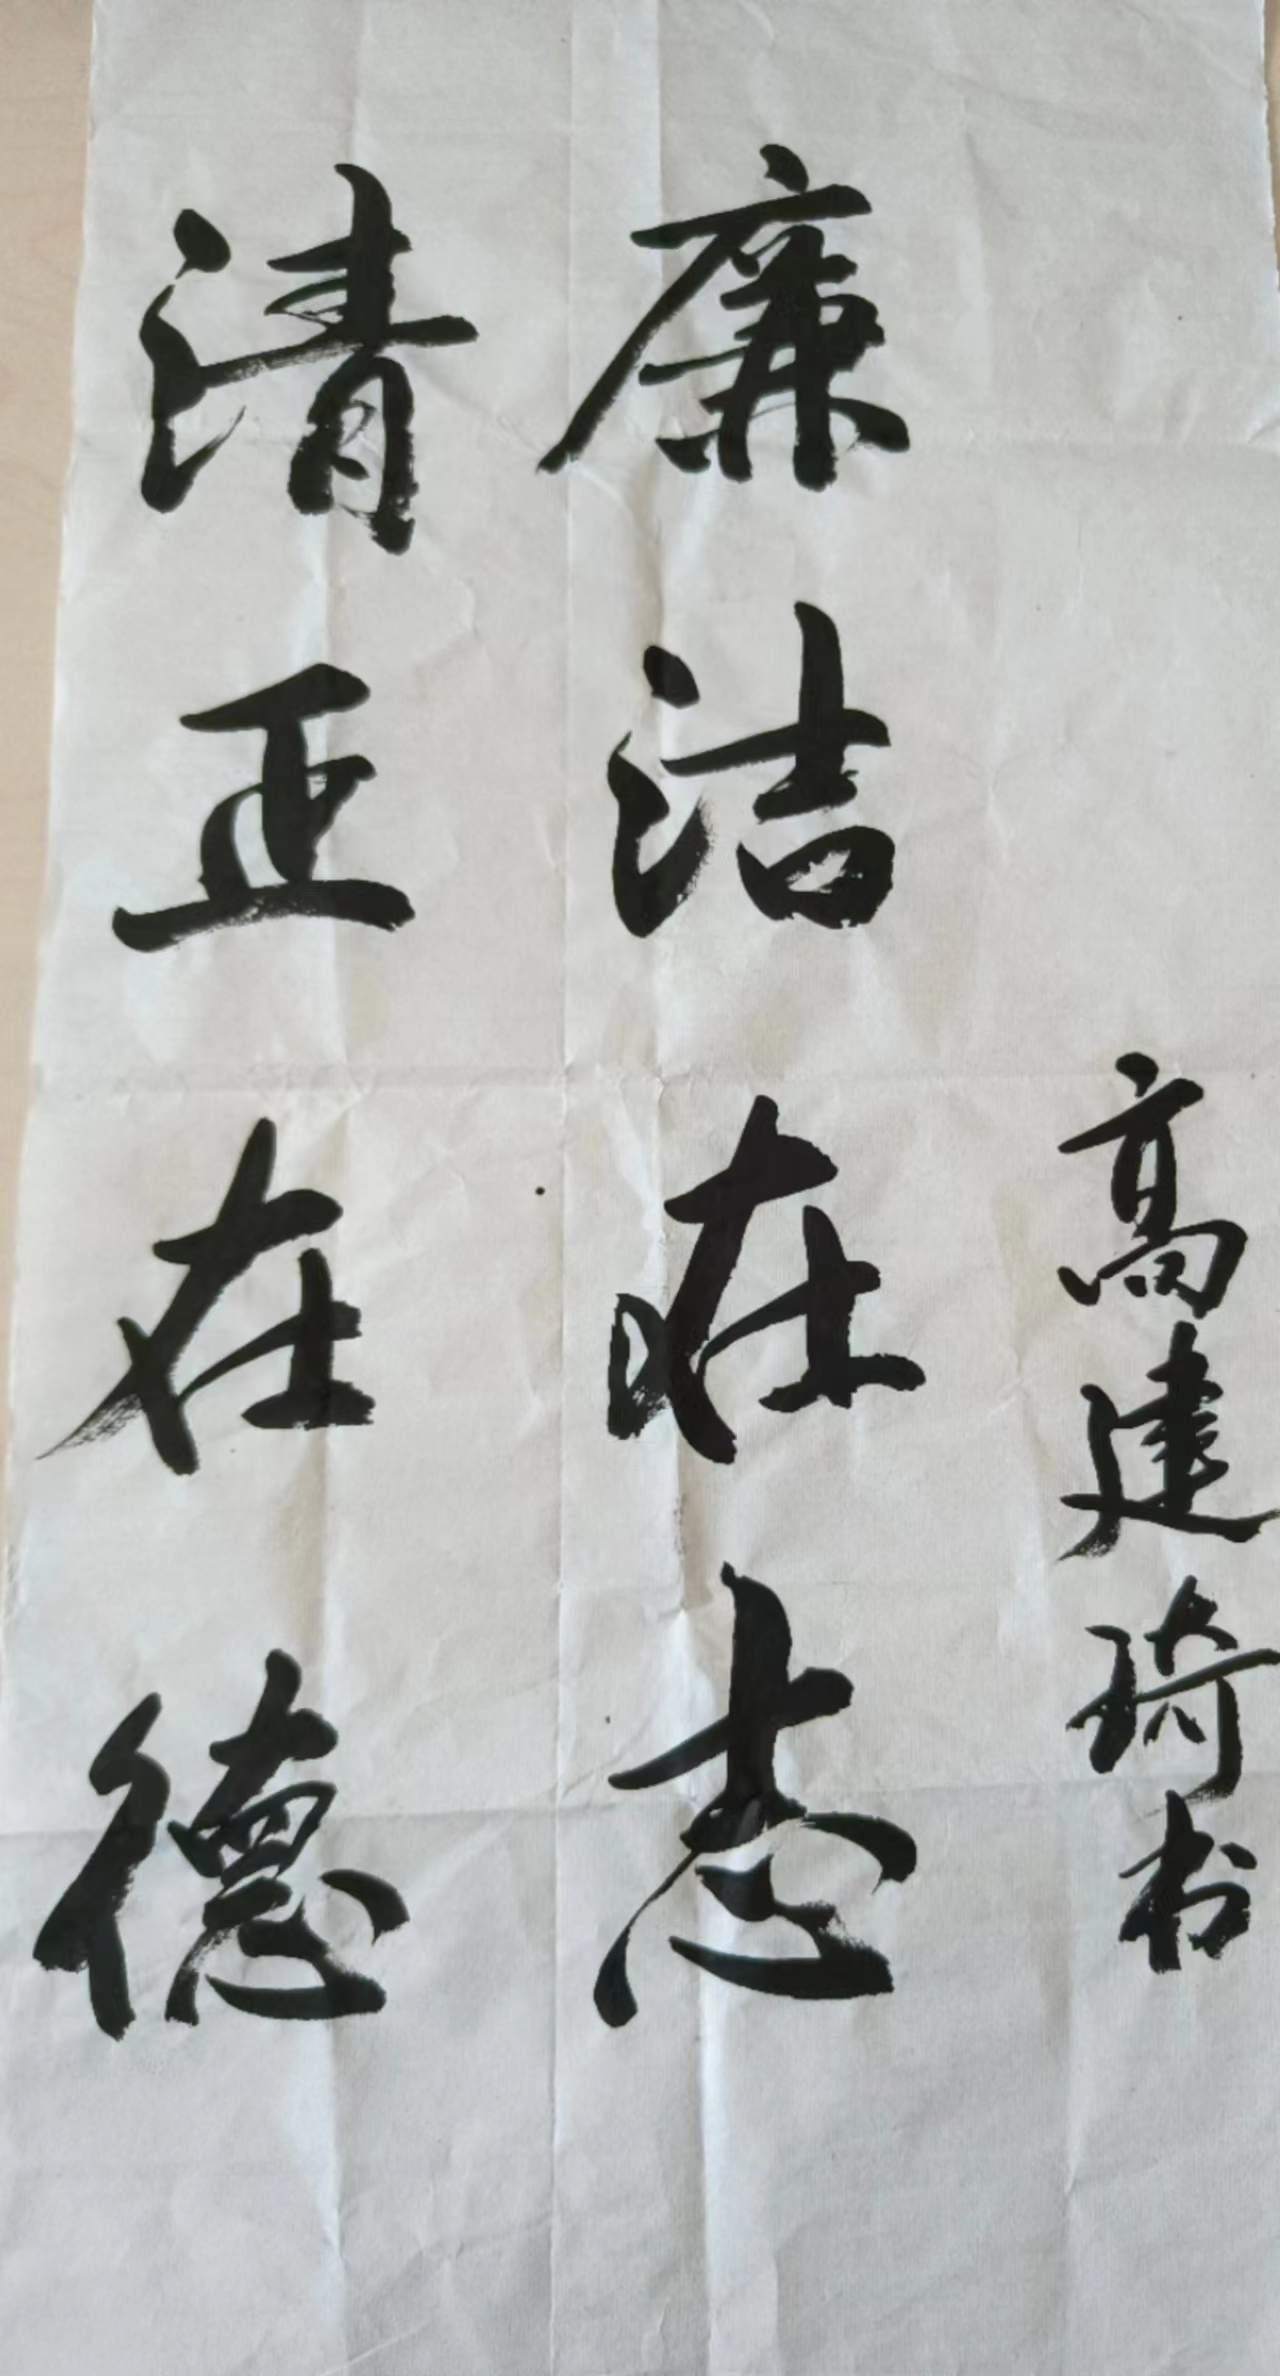 清正在德
廉洁在志
高建琦书